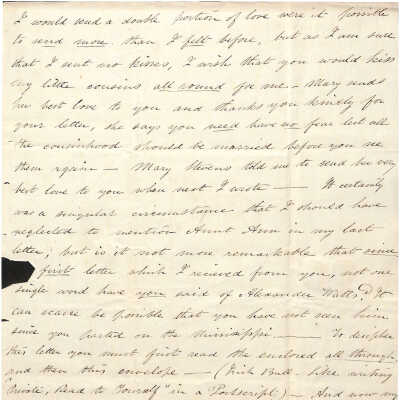 I would send a double portion of love were it possible
to send more than I felt before, but as I am sure
that I sent no kisses, I wish that you would kiss
my little cousins all round for me. Mary sends
her best love to you and thanks you kindly for
your letter, she says you need have no fear lest all
the cousinhood should be married before you see
them again — Mary Stevens told me to send her very
best love to you when next I wrote — It certainly
was a singular circumstance that I should have
neglected to mention Aunt Ann in my last
letter; but is it not more remarkable that since
first letter which I recieved from you, not one
single word have you said of Alexander Watts? It
can scarce be possible that you have not seen him
since you parted on the Mississippi — To decipher
this letter you must first read the enclosed all through
and then this envelope — ( Bull - like writing
"Private, Read to Yourself" in a Postscript) — And now my